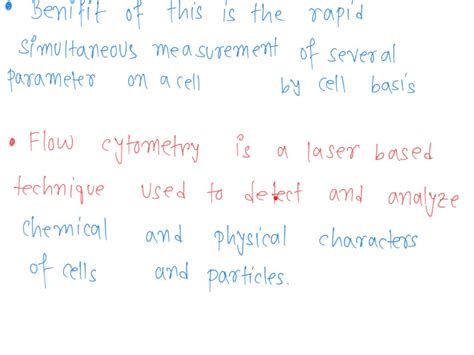 • Benifit of this is the rapid
simultaneous measurement of several
parameter on a cell by cell basis
• Flow cytometry is a laser based
technique used to detect and analyze
chemical and physical characters
of cells and particles.